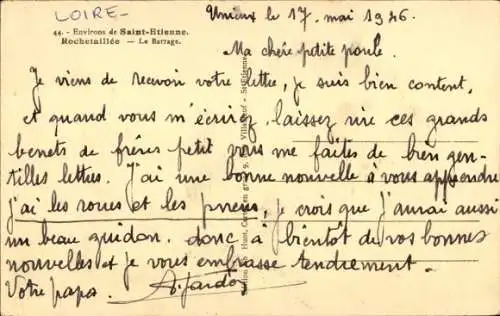 LOIRE-
Unieux le 17 mai 1946.
44. - Environs de Saint-Etienne.
Rochetaillée — Le Barrage.
Ma chère petite poule.
Je viens de recevoir votre lettre, je suis bien content,
et quand vous m'écrirez, laissez rire ces grands
benets de frères petit vous me faites de bien gen-
tilles lettres. J'ai une bonne nouvelle à vous apprendre
j'ai les roues et les pneus, je crois que j'aurai aussi
un beau guidon. donc à bientôt de vos bonnes
nouvelles et je vous embrasse tendrement.
Votre papa.